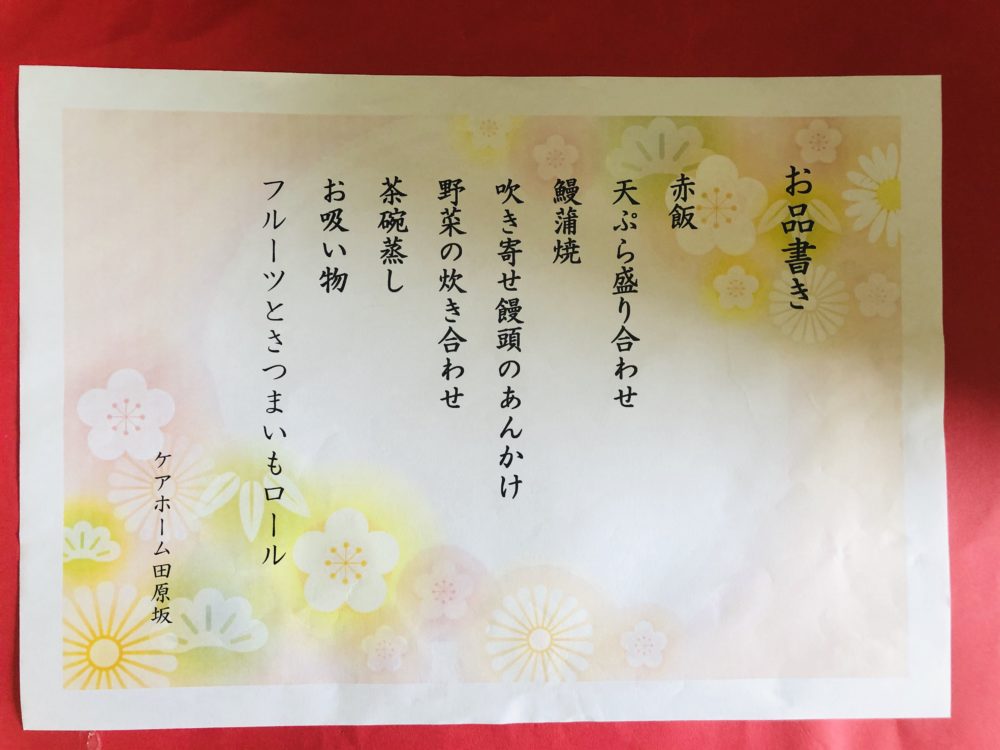 お品書き
赤飯
天ぷら盛り合わせ
鰻蒲焼
吹き寄せ饅頭のあんかけ
野菜の炊き合わせ
茶碗蒸し
お吸い物
フルーツとさつまいもロール
ケアホーム田原坂